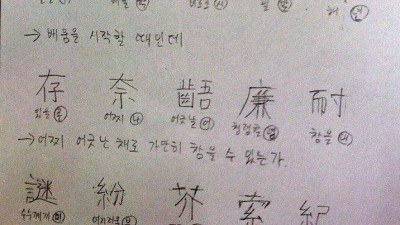 해
→ 배움을 시작할 때인데
存 奈 齬 廉 耐
있을 존 어찌 나 어긋날 어 청렴할 염 참을 내
→ 어찌 어긋난 채로 가만히 참을 수 있는가.
謎 紛 芥 索 紀
수수께끼 미 어지러울 분